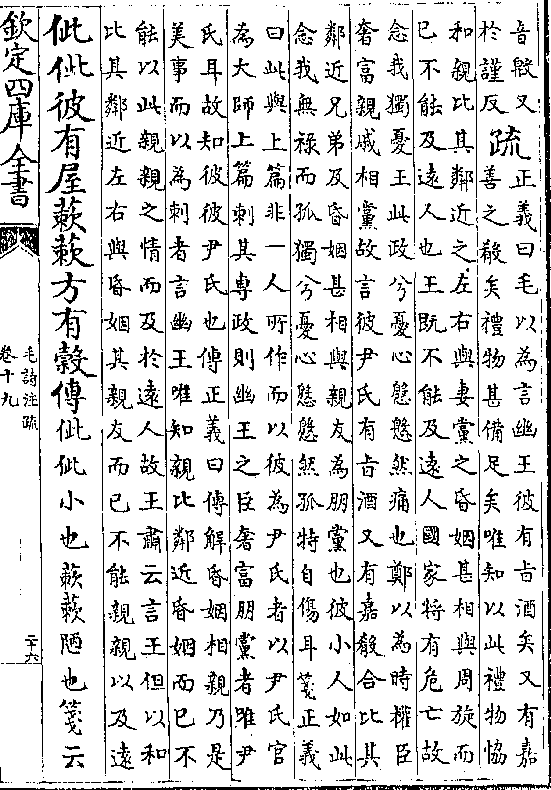 音殽又
於謹反疏
正義曰毛以為言幽王彼有㫖酒矣又有嘉
善之殽矣禮物甚備足矣唯知以此禮物恊
和親比其鄰近之左右與妻黨之昏姻甚相與周旋而
已不能及逺人也王既不能及逺人國家將有危亡故
念我獨憂王此政兮憂心慇慇然痛也鄭以為時權臣
奢富親戚相黨故言彼尹氏有㫖酒又有嘉殽合比其
鄰近兄弟及昏姻甚相與親友為朋黨也彼小人如此
念我無禄而孤獨兮憂心慇慇然孤特自傷耳箋正義
曰此與上篇非一人所作而以彼為尹氏者以尹氏官
為大師上篇刺其専政則幽王之臣奢富朋黨者雖尹
氏耳故知彼彼尹氏也傳正義曰傳解昏姻相親乃是
美事而以為刺者言幽王唯知親比鄰近昏姻而已不
能以此親親之情而及於逺人故王肅云言王但以和
比其鄰近左右與昏姻其親友而已不能親親以及逺
佌佌彼有屋蔌蔌方有糓傳佌佌小也蔌蔌陋也箋云
欽定四庫全書
毛詩注疏
卷十九
二十六